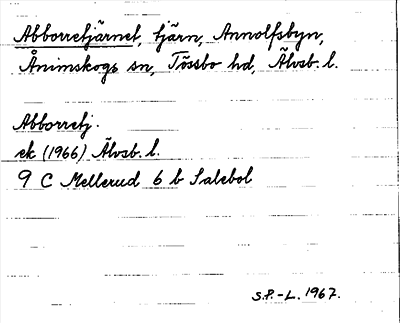 Abborretjärnet, tjärn, Annolfsbyn,
Ånimskogs sn, Tössbo hd, Älvsb. l.
Abborretj.
ek (1966) Älvsb. l.
9 C Mellerud 6 b Salebol
S.P.-L. 1967.